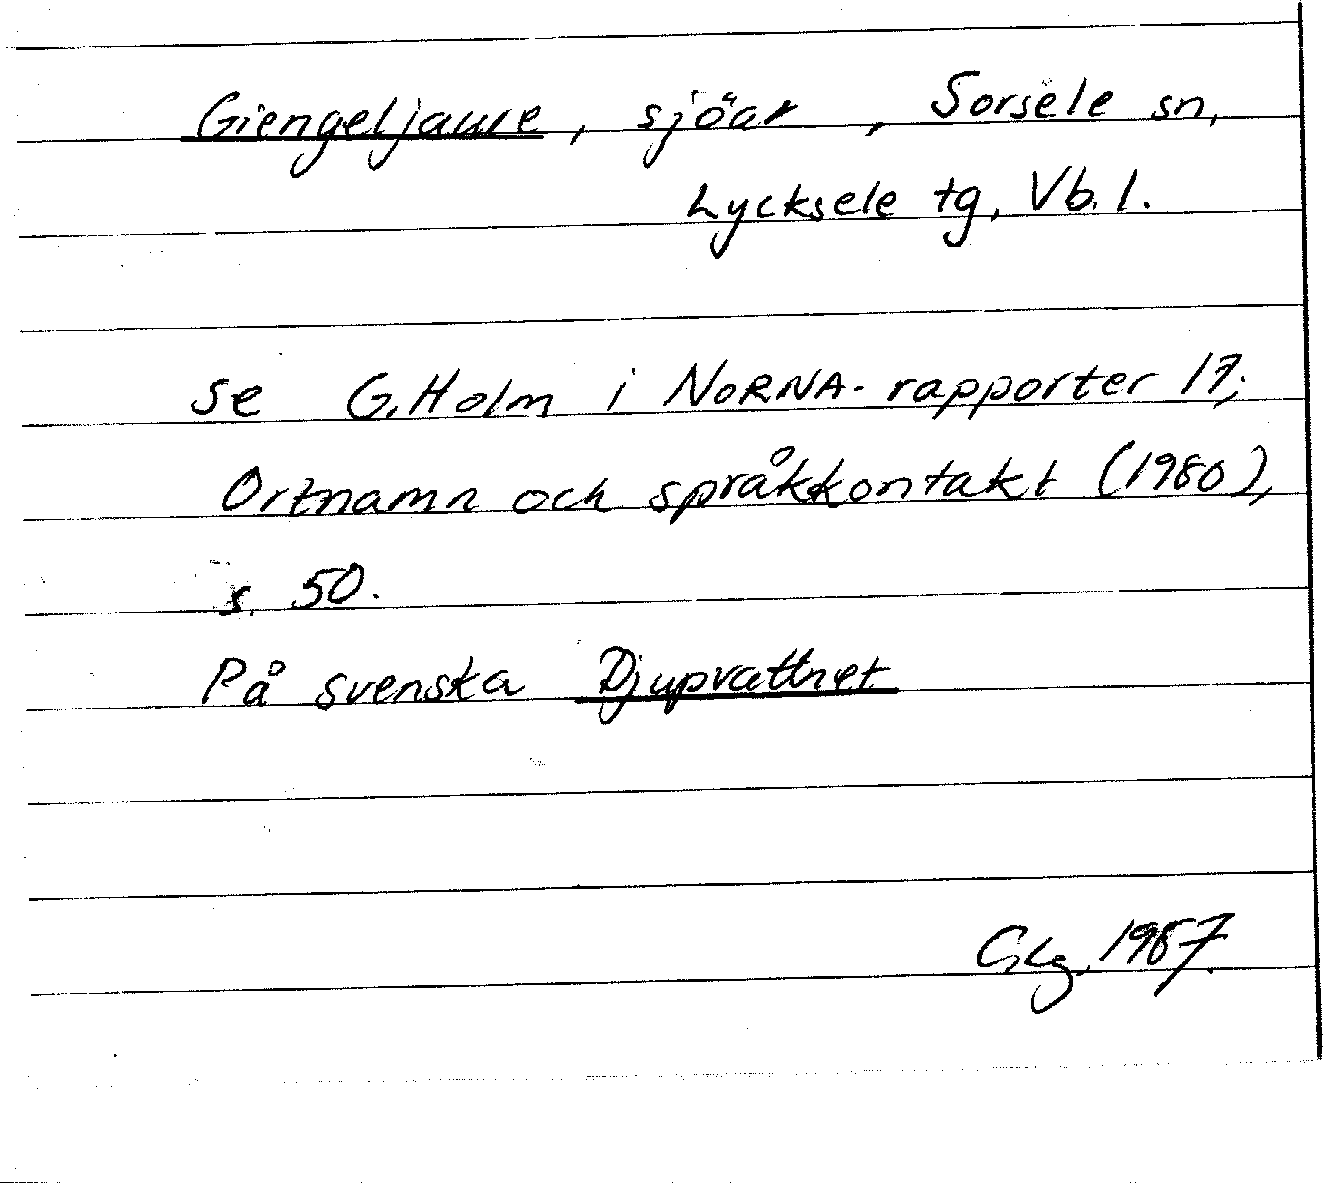 Giengeljaure, sjöar, Sorsele sn,
Lycksele tg, Vb. l.
se G. Holm i NORNA-rapporter 17;
Ortnamn och språkkontakt (1980),
s. 50.
På svenska Djupvattnet
1987.